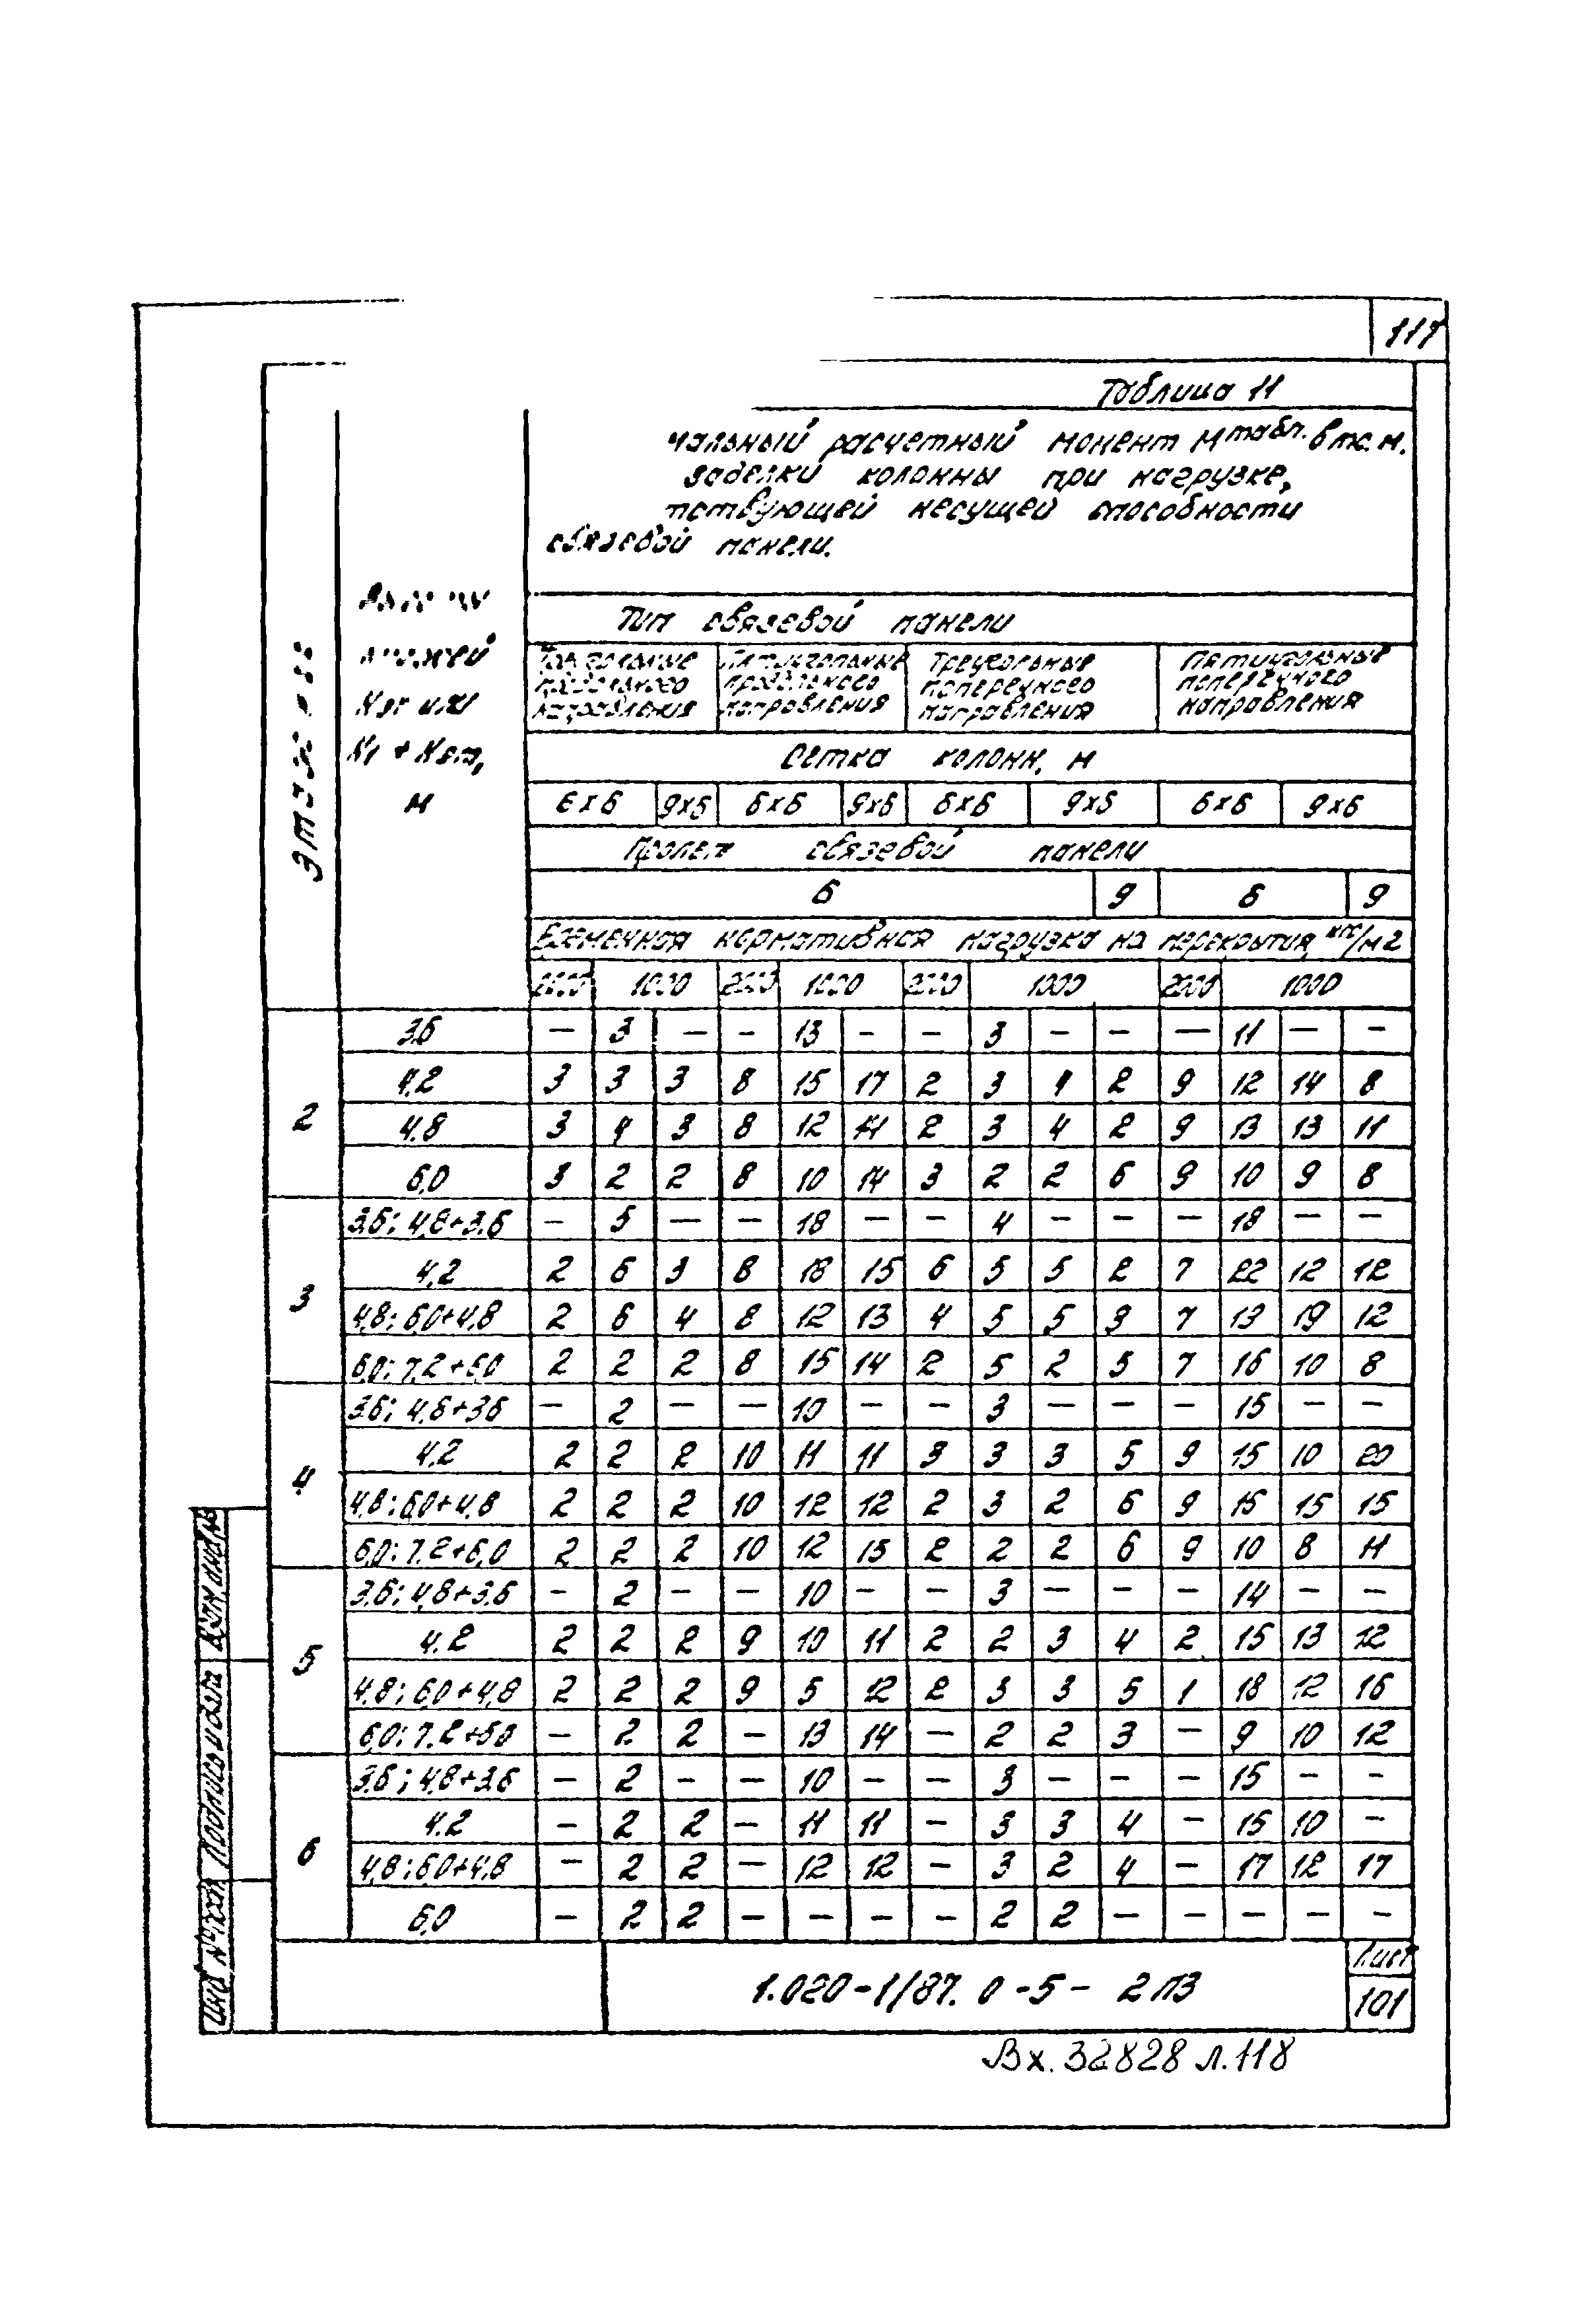 117
Таблица 11
чальный расчетный момент Мтабл. в тс.м.
заделки колонны при нагрузке,
тствующей несущей способности
связевой панели.
этажей
м
Тип связевой панели
Треугольные продольного направления
Пятиугольные продольного направления
Треугольные поперечного направления
Пятиугольные поперечного направления
Сетка колонн, м
6х6 9х6 6х6 9х6 6х6 9х6 6х6 9х6
Пролет связевой панели
6 9 6 9
нормативная нагрузка на перекрытия, кгс/м2
2000 1000 2000 1000 2000 1000 2000 1000
2
3.6 — 3 — — 13 — — 3 — — — 11 — —
4.2 3 3 3 8 15 17 2 3 4 2 9 12 14 8
4.8 3 4 3 8 12 14 2 3 4 2 9 13 13 11
6,0 3 2 2 8 10 14 3 2 2 6 9 10 9 8
3
3.6; 4,8+3.6 — 5 — — 18 — — 4 — — — 18 — —
4,2 2 6 3 8 18 15 6 5 5 2 7 22 12 12
4,8; 6,0+4,8 2 6 4 8 12 13 4 5 5 3 7 13 19 12
6,0; 7.2+6,0 2 2 2 8 15 14 2 5 2 5 7 16 10 8
4
3.6; 4,8+3.6 — 2 — — 10 — — 3 — — — 15 — —
4,2 2 2 2 10 11 11 3 3 3 5 9 15 10 20
4,8; 6,0+4,8 2 2 2 10 12 12 2 3 2 6 9 15 15 15
6,0; 7.2+6,0 2 2 2 10 12 15 2 2 2 6 9 10 8 11
5
3.6; 4,8+3.6 — 2 — — 10 — — 3 — — — 14 — —
4.2 2 2 2 9 10 11 2 2 3 4 2 15 13 12
4,8; 6,0+4,8 2 2 2 9 5 12 2 3 3 5 1 18 12 16
6,0; 7.2+6,0 — 2 2 — 13 14 — 2 2 3 — 9 10 12
6
3.6; 4,8+3.6 — 2 — — 10 — — 3 — — — 15 — —
4.2 — 2 2 — 11 11 — 3 3 4 — 15 10 —
4,8; 6,0+4,8 — 2 2 — 12 12 — 3 2 4 — 17 12 17
6,0 — 2 2 — — — — 2 2 — — — — —
Инв. № подл. Подпись и дата Взам. инв. №
1.020-1/87. 0-5- 2 ПЗ
Лист
101
Вх. 32828 л. 118